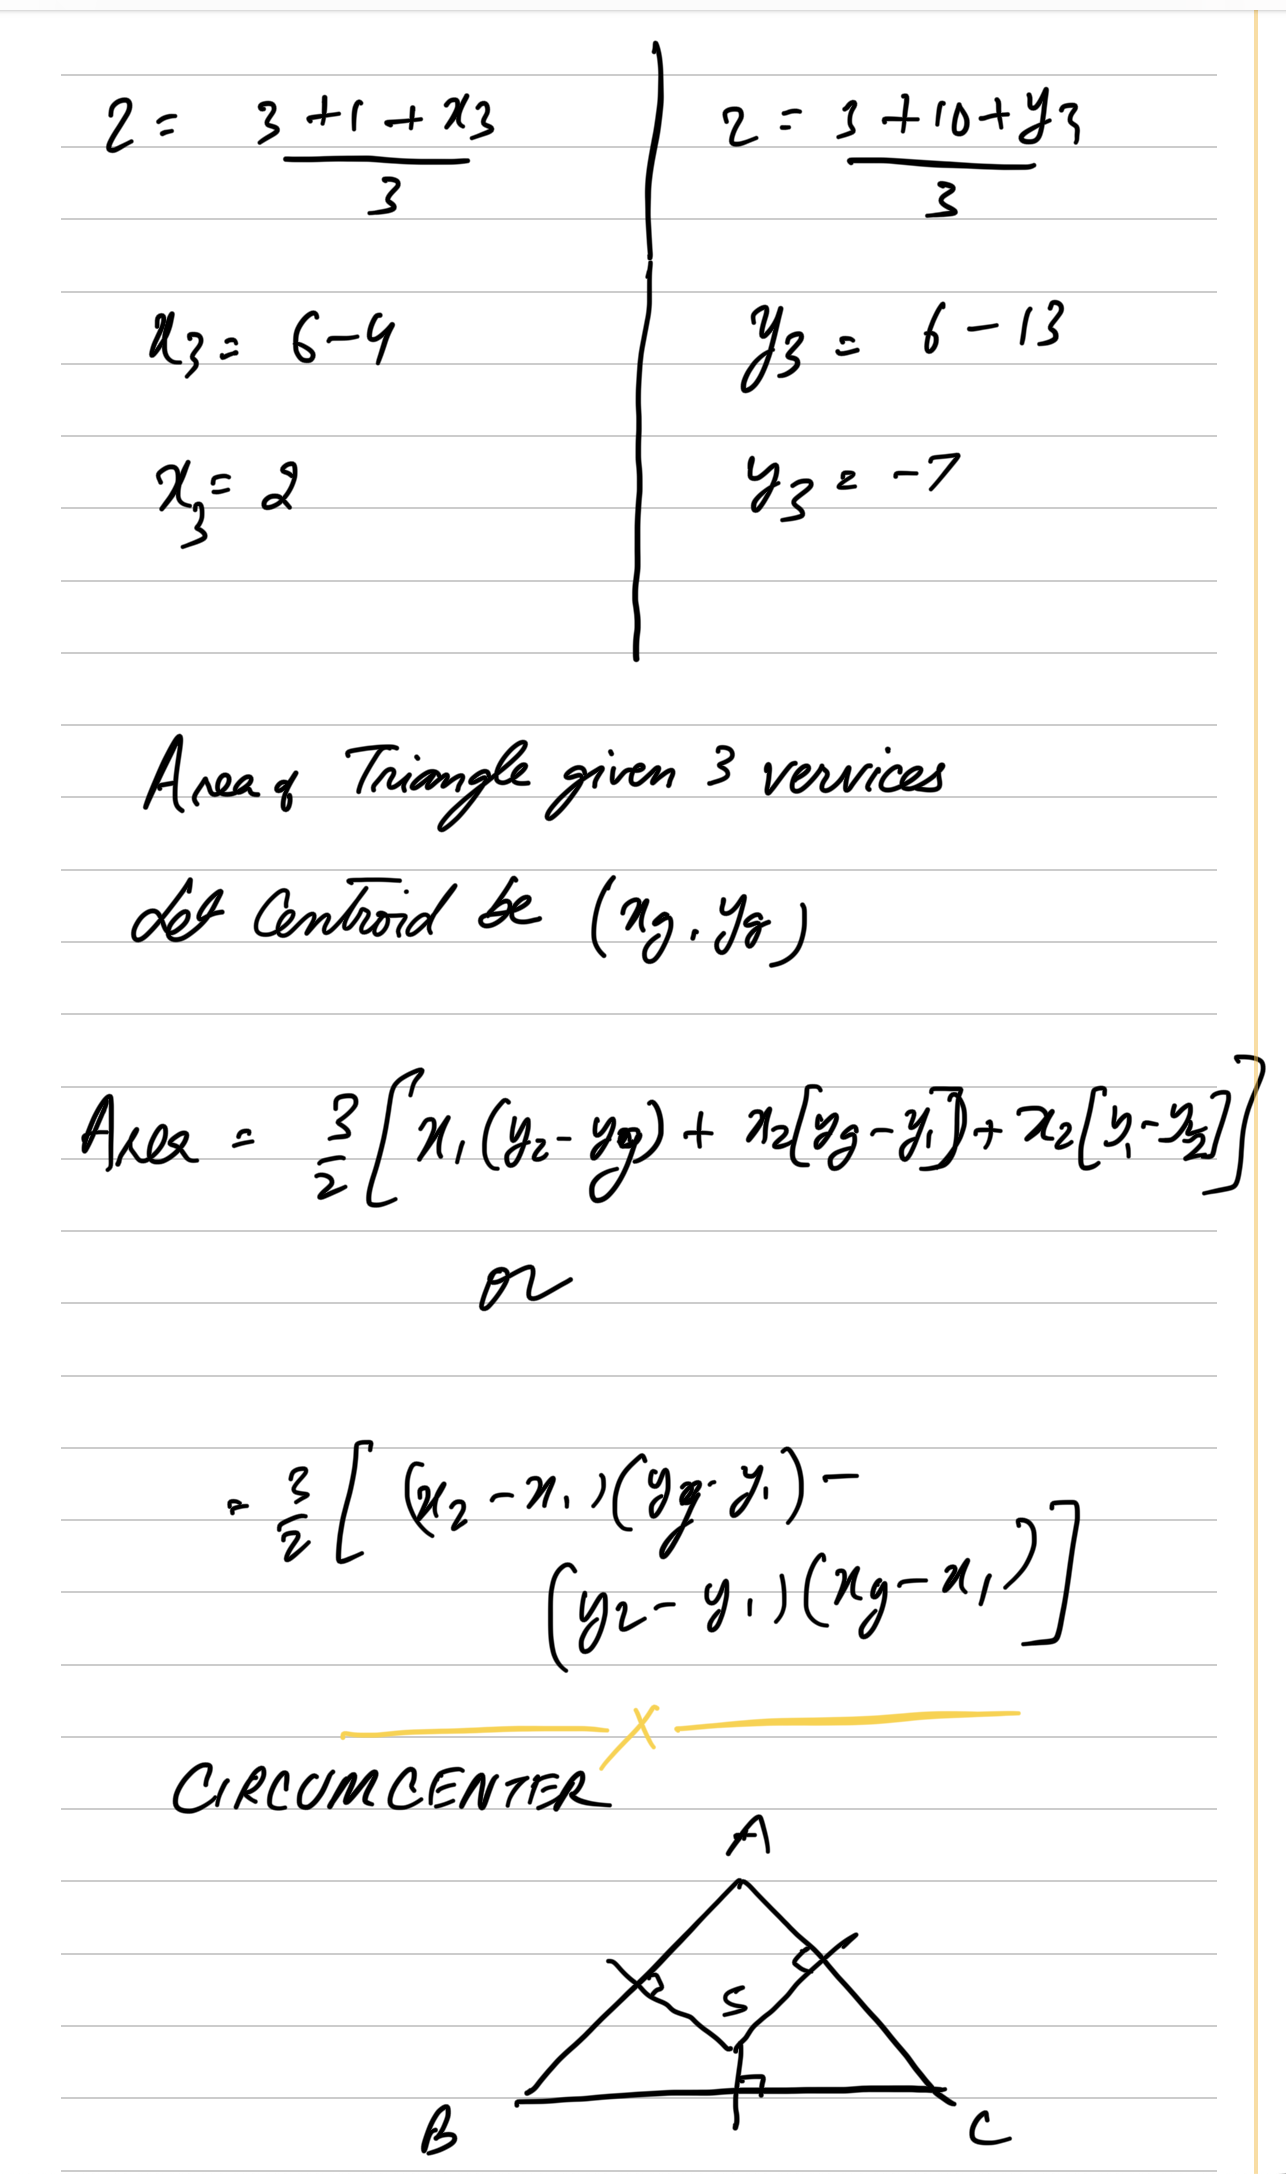 2 = (3 + 1 + x₃)/3
x₃ = 6 - 4
x₃ = 2
2 = (3 + 10 + y₃)/3
y₃ = 6 - 13
y₃ = -7
Area of Triangle given 3 vervices
Let Centroid be (xg, yg)
Area = 3/2 [x₁(y₂ - yg) + x₂[yg - y₁] + x₂[y₁ - y₂]]
or
= 3/2 [(x₂ - x₁)(yg - y₁) -
(y₂ - y₁)(xg - x₁)]
X
CIRCUMCENTER
A
S
B
C